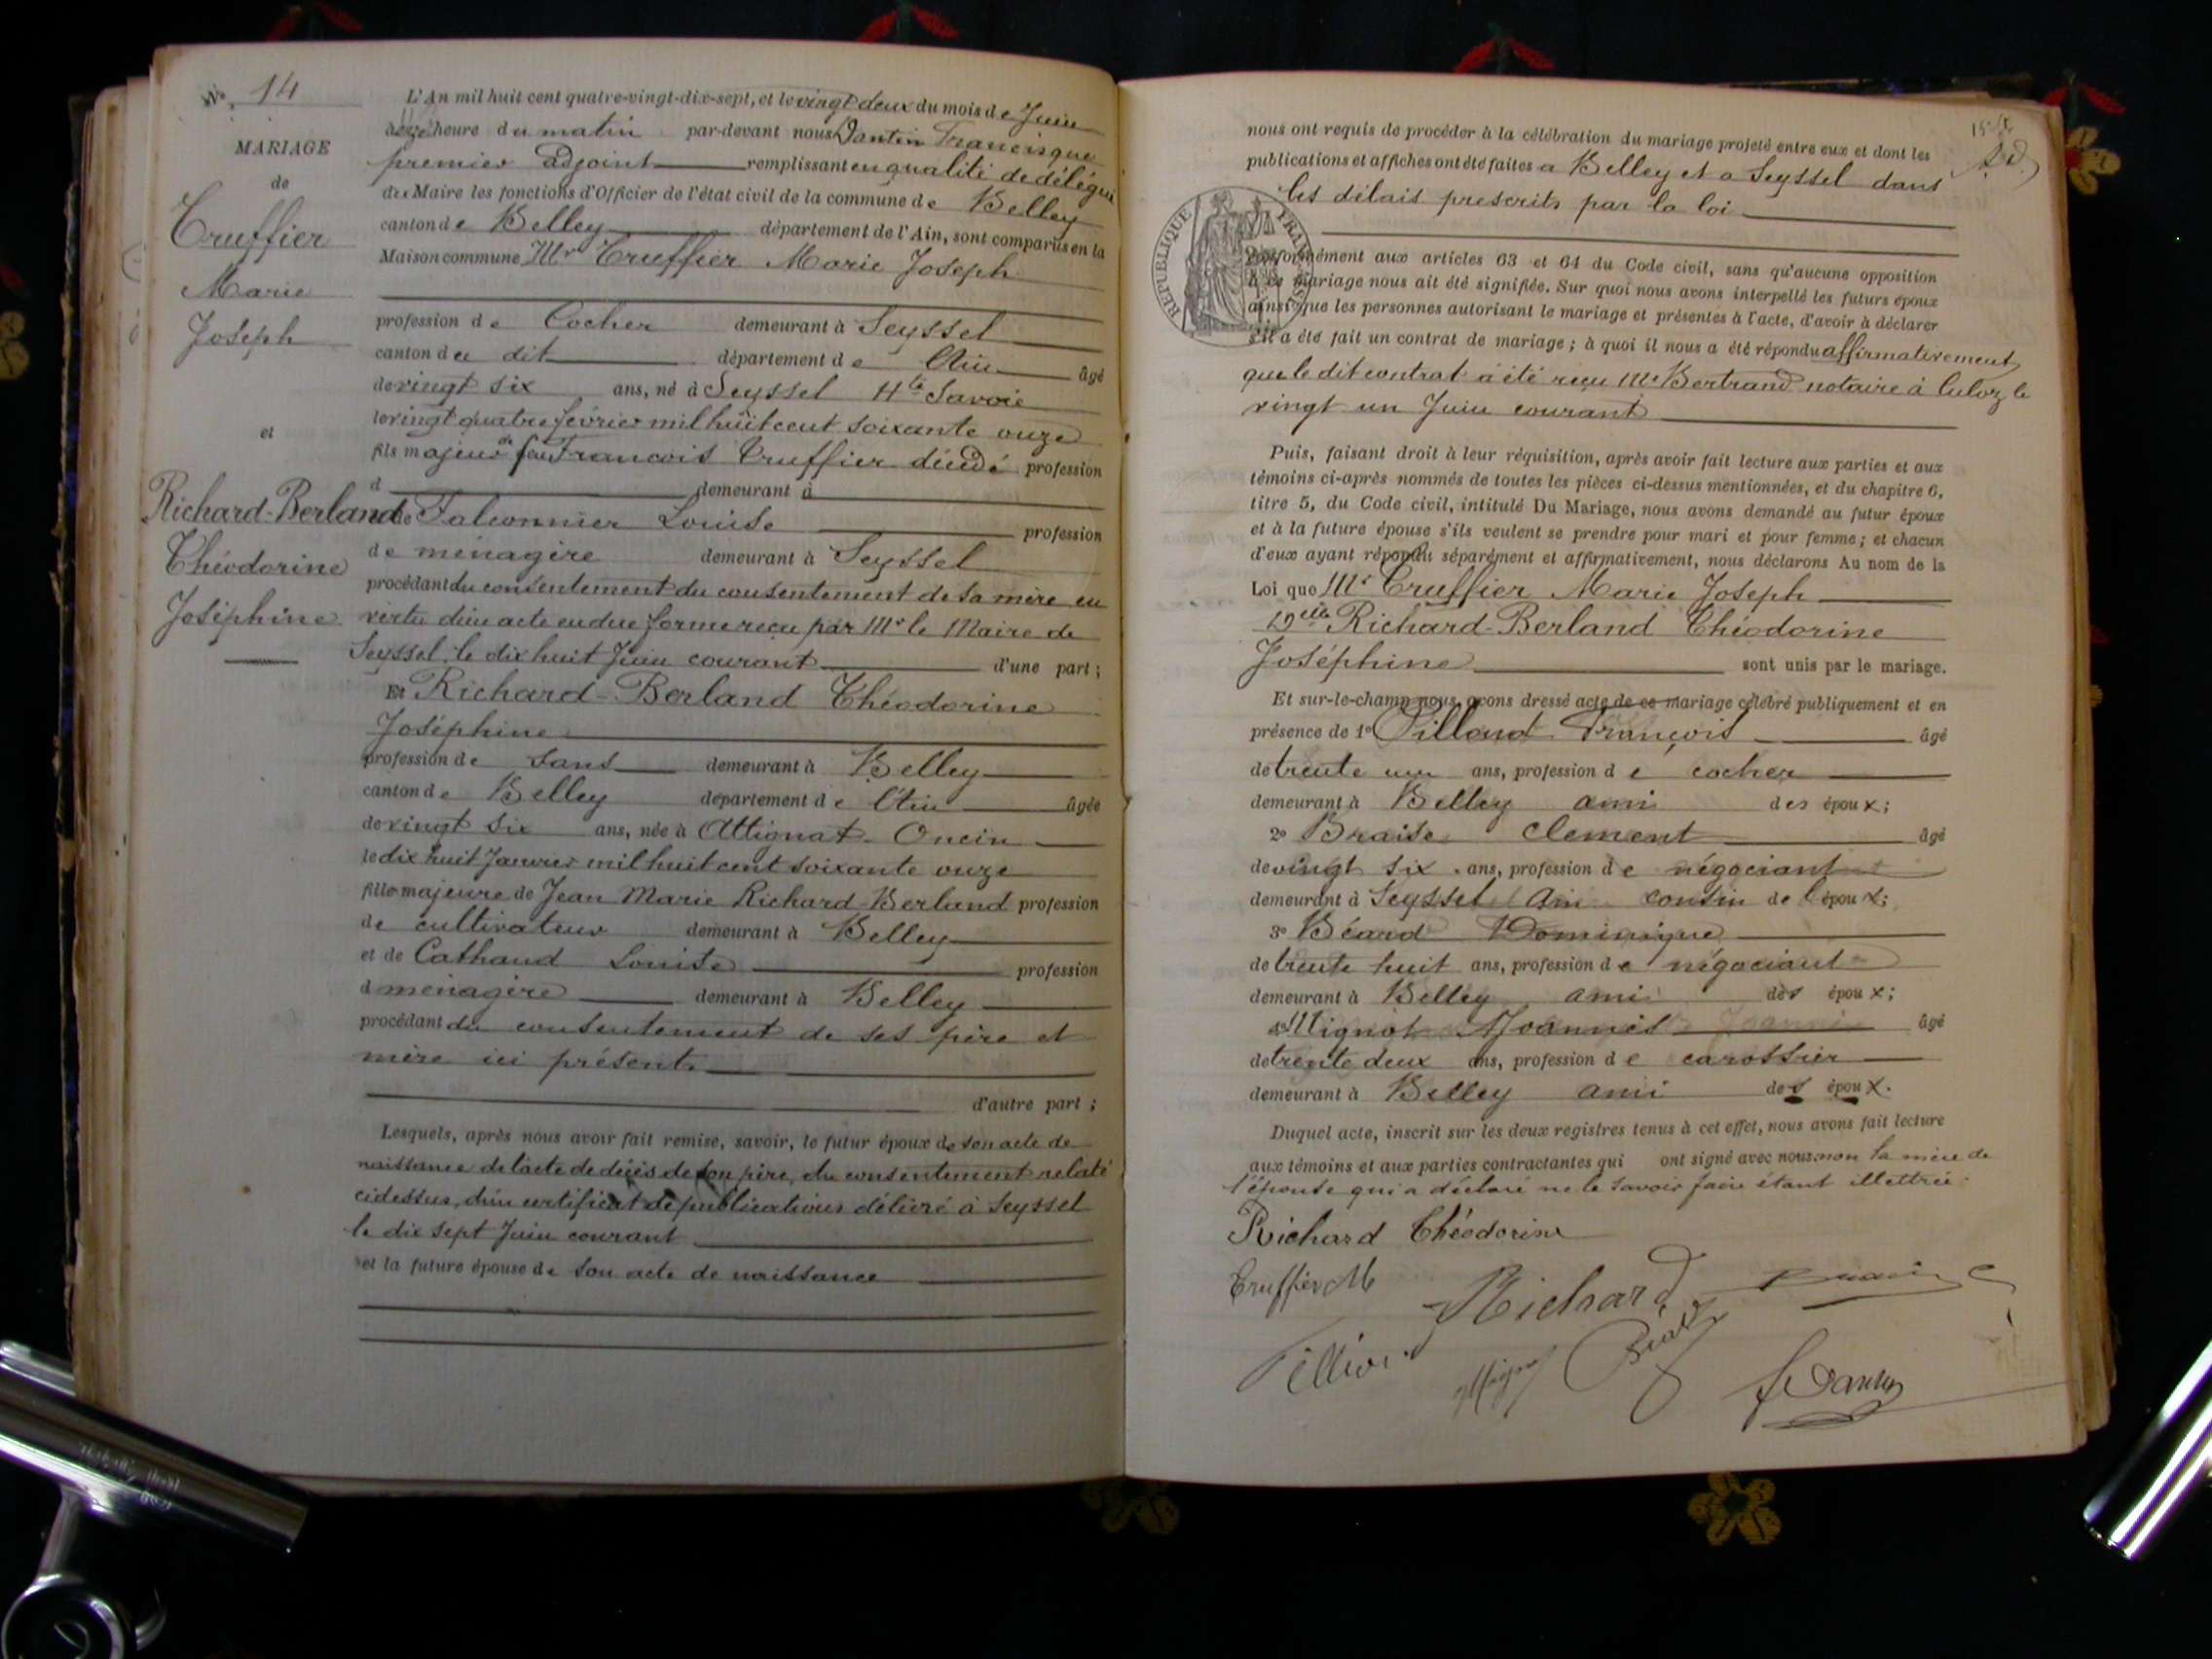 No. 14
MARIAGE
de
Truffier
Marie
Joseph
et
Richard-Berland
Théodorine
Joséphine
L'An mil huit cent quatre-vingt-dix-sept, et le vingt deux du mois de Juin
heure du matin par-devant nous Dantin Francisque
premier adjoint remplissant en qualité de délégué
du Maire les fonctions d'Officier de l'état civil de la commune de Belley
canton de Belley département de l'Ain, sont comparus en la
Maison commune Mr Truffier Marie Joseph
profession de Cocher demeurant à Seyssel
canton du dit département de l'Ain âgé
de vingt six ans, né à Seyssel Hte Savoie
le vingt quatre février mil huit cent soixante onze
fils majeur de feu Francois Truffier décédé profession
d demeurant à
et de Falconnier Louise profession
de ménagère demeurant à Seyssel
procédant du consentement du consentement de sa mère en
vertu d'un acte en due forme reçu par Mr le Maire de
Seyssel le dix huit Juin courant d'une part ;
Et Richard-Berland Théodorine
Joséphine
profession de sans demeurant à Belley
canton de Belley département de l'Ain âgée
de vingt six ans, née à Attignat-Oncin
le dix huit Janvier mil huit cent soixante onze
fille majeure de Jean Marie Richard-Berland profession
de cultivateur demeurant à Belley
et de Cathaud Louise profession
d ménagère demeurant à Belley
procédant du consentement de ses père et
mère ici présents
d'autre part ;
Lesquels, après nous avoir fait remise, savoir, le futur époux de son acte de
naissance de l'acte de décès de son père, du consentement relaté
ci dessus, d'un certificat de publications délivré à Seyssel
le dix sept Juin courant
et la future épouse de son acte de naissance
nous ont requis de procéder à la célébration du mariage projeté entre eux et dont les
publications et affiches ont été faites a Belley et a Seyssel dans
les délais prescrits par la loi
RÉPUBLIQUE FRANÇAISE
conformément aux articles 63 et 64 du Code civil, sans qu'aucune opposition
à ce mariage nous ait été signifiée. Sur quoi nous avons interpellé les futurs époux
ainsi que les personnes autorisant le mariage et présentes à l'acte, d'avoir à déclarer
s'il a été fait un contrat de mariage ; à quoi il nous a été répondu affirmativement
que le dit contrat a été reçu Me Bertrand notaire à Culoz le
vingt un Juin courant
Puis, faisant droit à leur réquisition, après avoir fait lecture aux parties et aux
témoins ci-après nommés de toutes les pièces ci-dessus mentionnées, et du chapitre 6,
titre 5, du Code civil, intitulé Du Mariage, nous avons demandé au futur époux
et à la future épouse s'ils veulent se prendre pour mari et pour femme ; et chacun
d'eux ayant répondu séparément et affirmativement, nous déclarons Au nom de la
Loi que Mr Truffier Marie Joseph
Delle Richard-Berland Théodorine
Joséphine sont unis par le mariage.
Et sur-le-champ nous avons dressé acte de ce mariage célébré publiquement et en
présence de 1º François âgé
de trente un ans, profession de cocher
demeurant à Belley ami des époux ;
2º Braise Clement âgé
de vingt six ans, profession de négociant
demeurant à Seyssel Ain cousin de l'époux ;
3º Béard Dominique
de trente huit ans, profession de négociant
demeurant à Belley ami des époux ;
4º Mignot Joannès âgé
de trente deux ans, profession de carossier
demeurant à Belley ami des époux.
Duquel acte, inscrit sur les deux registres tenus à cet effet, nous avons fait lecture
aux témoins et aux parties contractantes qui ont signé avec nous non la mère de
l'épouse qui a déclaré ne le savoir faire étant illettrée.
Richard Théodorine
Truffier M
Richard